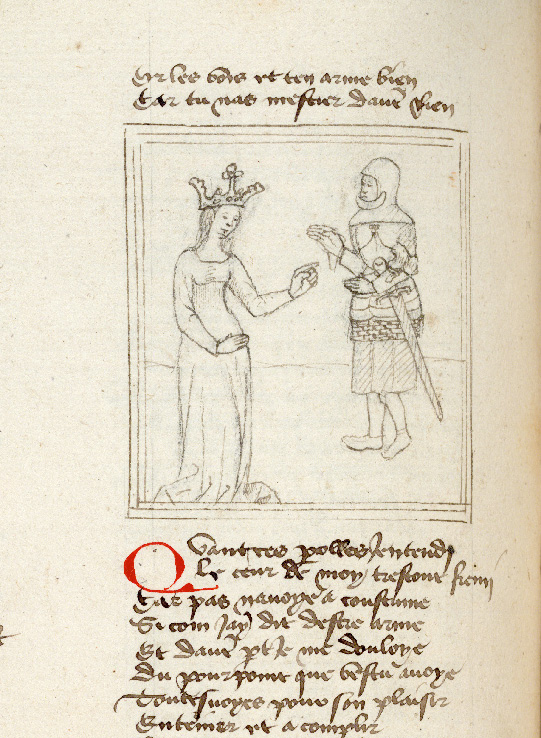 Or les vois et ten arme bien
Car tu nas mestier dauẽ rien
Quant ces polles Jentendy
Le ceur de moy trestout fremi
Car pas nauoye a coustume
Si com Jay dit destre arme
Et dauẽ pt Je me douloye
Du pourpoint que vestu auoye
Toutesuoyes pour son plaisir
Enteriner et acomplir